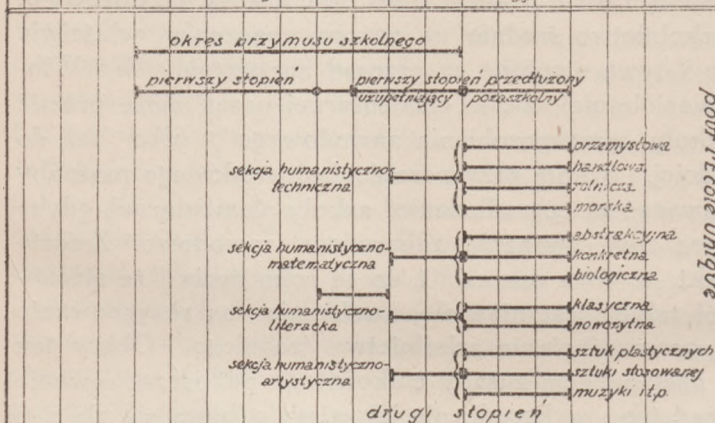 okres przymusu szkolnego
pierwszy stopień
pierwszy stopień przedłużony
uzupełniający
pozaszkolny
sekcja humanistyczno-
techniczna
przemysłowa
handlowa
rolnicza
morska
sekcja humanistyczno-
matematyczna
abstrakcyjna
konkretna
biologiczna
sekcja humanistyczno-
literacka
klasyczna
nowożytna
sekcja humanistyczno-
artystyczna
sztuk plastycznych
sztuki stosowanej
muzyki i t.p.
drugi stopień
pour l'école unique